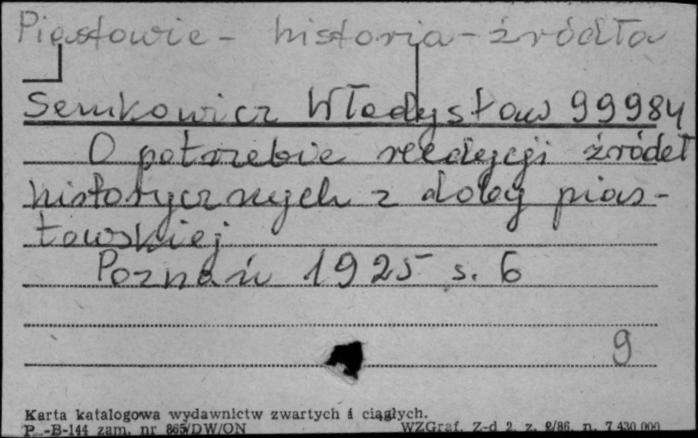 Piastowie - historia - źródła
Semkowicz Władysław 99984
O potrzebie reedycji źródeł
historycznych z doby pias-
towskiej
Poznań 1925 s. 6
9
Karta katalogowa wydawnictw zwartych i ciągłych.
P -B-144 zam. nr 865/DW/ON WZGraf. Z-d 2, z. 2/86, n. 7 430 000